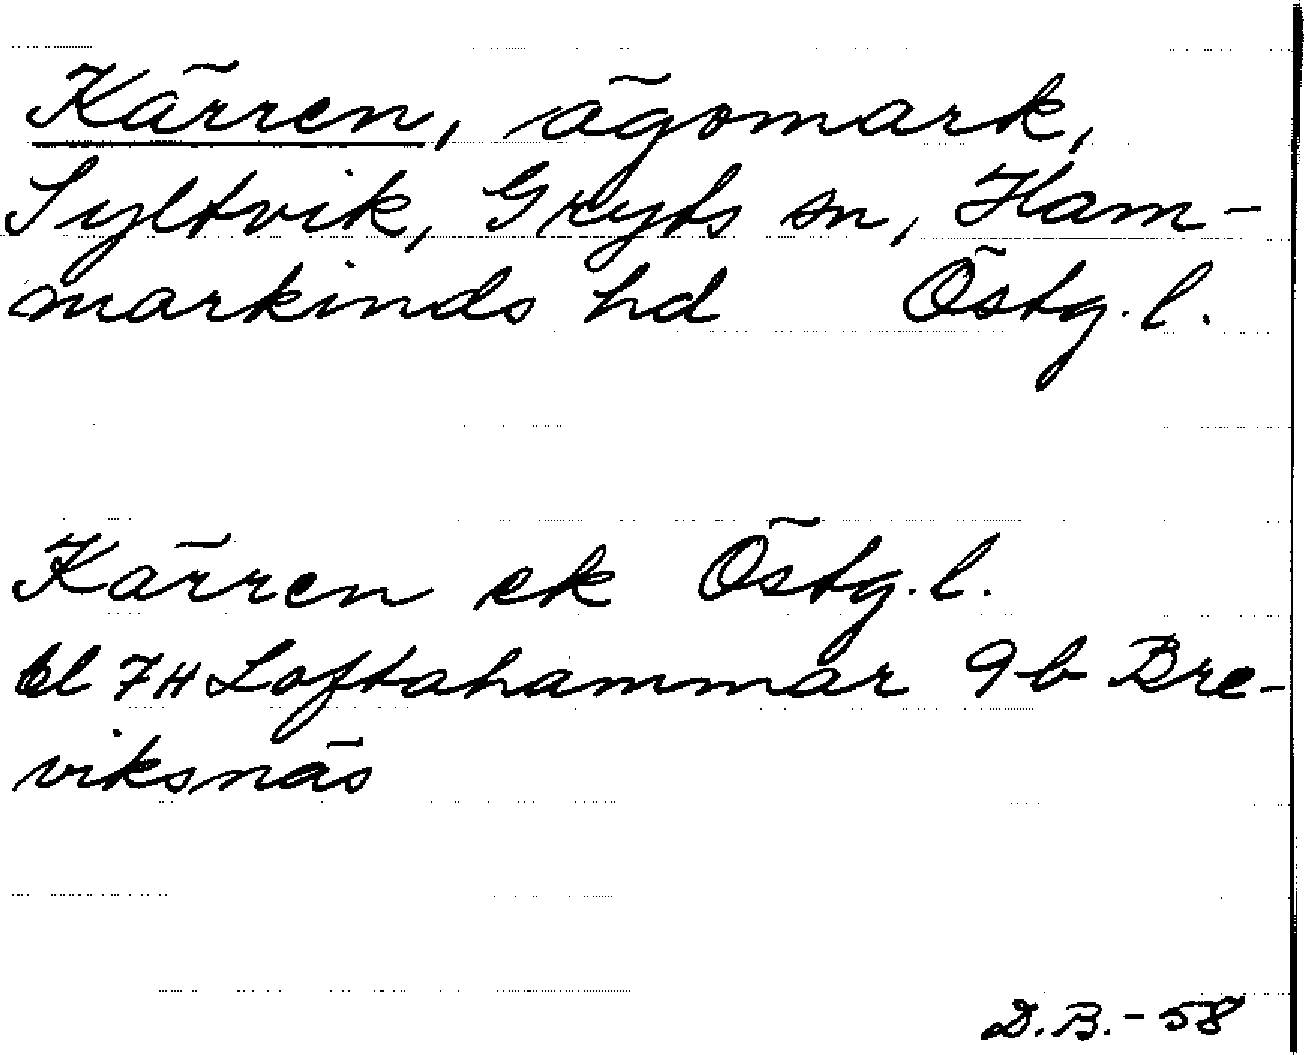 Kärren, ägomark,
Syltvik, Gryts sn, Ham-
markinds hd Östg. l.
Kärren ek Östg. l.
bl 7H Loftahammar 9b Bre-
viksnäs
D.B. - 58